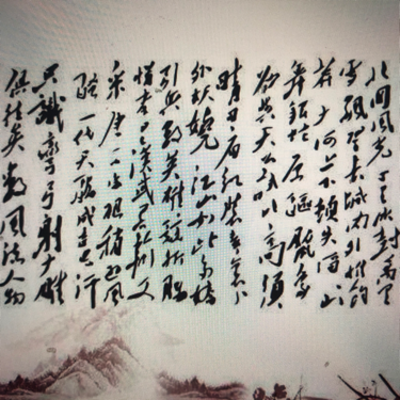 北国风光千里冰封万里
雪飘望长城内外惟余
莽莽大河上下顿失滔滔山
舞银蛇原驰腊象
欲与天公试比高须
晴日看红装素裹
分外妖娆江山如此多娇
引無数英雄竞折腰
惜秦皇汉武略输文
采唐宗宋祖稍逊风
骚一代天骄成吉思汗
只識彎弓射大雕
俱往矣數風流人物